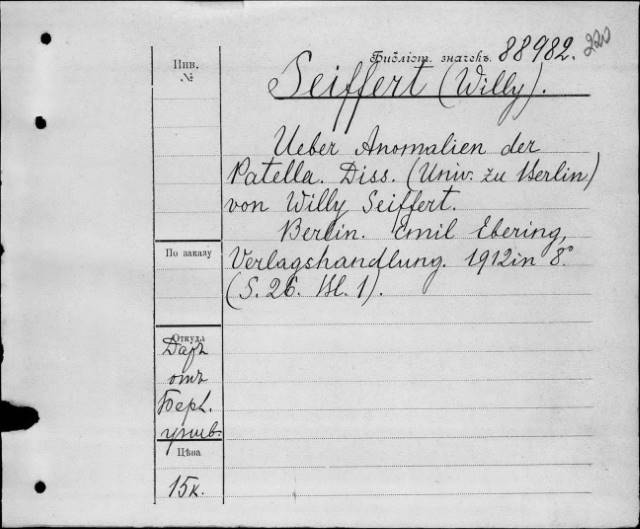 Библіот. значекъ. 88982.
220
Инв.
№
Seiffert (Willy).
Ueber Anomalien der
Patella. Diss. (Univ. zu Berlin)
von Willy Seiffert.
Berlin. Emil Ebering,
По заказу
Verlagshandlung. 1912 in 8°
(S. 26. Bl. 1).
Откуда
Даръ
отъ
Берл.
унив.
Цѣна
15к.